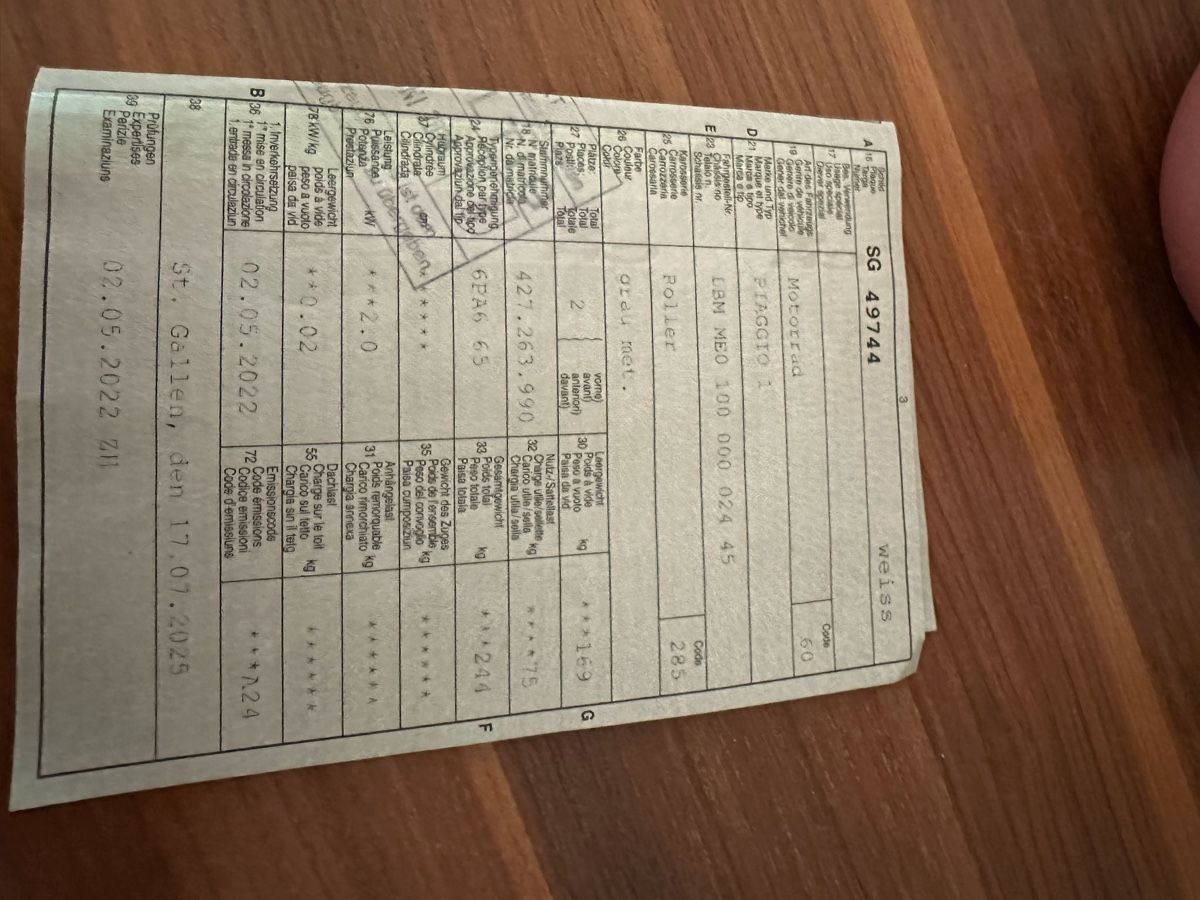 3
A 15 Schild
Plaque
Targa
Numer
SG 49744
weiss
17 Bes. Verwendung
Usage spécial
Uso speciale
Diever spezial
19 Art des Fahrzeugs
Genre de véhicule
Genere di veicolo
Gener dal vehichel
Motorrad
Code
60
D 21 Marke und Typ
Marque et type
Marca e tipo
Marca e tip
PIAGGIO 1
E 23 Fahrgestell-Nr.
Châssis no
Telaio n.
Schassis nr.
LBM ME0 100 000 024 45
25 Karosserie
Carrosserie
Carrozzeria
Carrossaria
Roller
Code
285
26 Farbe
Couleur
Colore
Colur
grau met.
27 Plätze:
Places:
Posti:
Plazs:
Total
Total
Totale
Total
2
vorne)
avant)
anteriori)
davant)
30 Leergewicht
Poids à vide
Peso a vuoto
Paisa da vid
kg
***169
G
18 Stammnummer
N° matricule
N. di matricola
Nr. da matricla
427.263.990
32 Nutz-/Sattellast
Charge utile/sellette
Carico utile/sella
Chargia utila/sella
kg
****75
24 Typengenehmigung
Réception par type
Approvazione del tipo
Approvaziun da tip
6EA6 65
33 Gesamtgewicht
Poids total
Peso totale
Paisa totala
kg
***244
F
37 Hubraum
Cylindrée
Cilindrata
Cilindrada
*****
35 Gewicht des Zuges
Poids de l'ensemble
Peso del convoglio
Paisa cumposiziun
kg
******
76 Leistung
Puissance
Potenza
Prestaziun
kW
***2.0
31 Anhängelast
Poids remorquable
Carico rimorchiato
Chargia annexa
kg
******
78 kW/kg
Leergewicht
poids à vide
peso a vuoto
paisa da vid
**0.02
55 Dachlast
Charge sur le toit
Carico sul tetto
Chargia sin il tetg
kg
******
B 36 1. Inverkehrsetzung
1re mise en circulation
1a messa in circolazione
1. entrada en circulaziun
02.05.2022
72 Emissionscode
Code émissions
Codice emissioni
Code d'emissiuns
***A24
38
St. Gallen, den 17.07.2025
39 Prüfungen
Expertises
Perizie
Examinaziuns
02.05.2022 ZH
ist dem
übergeben